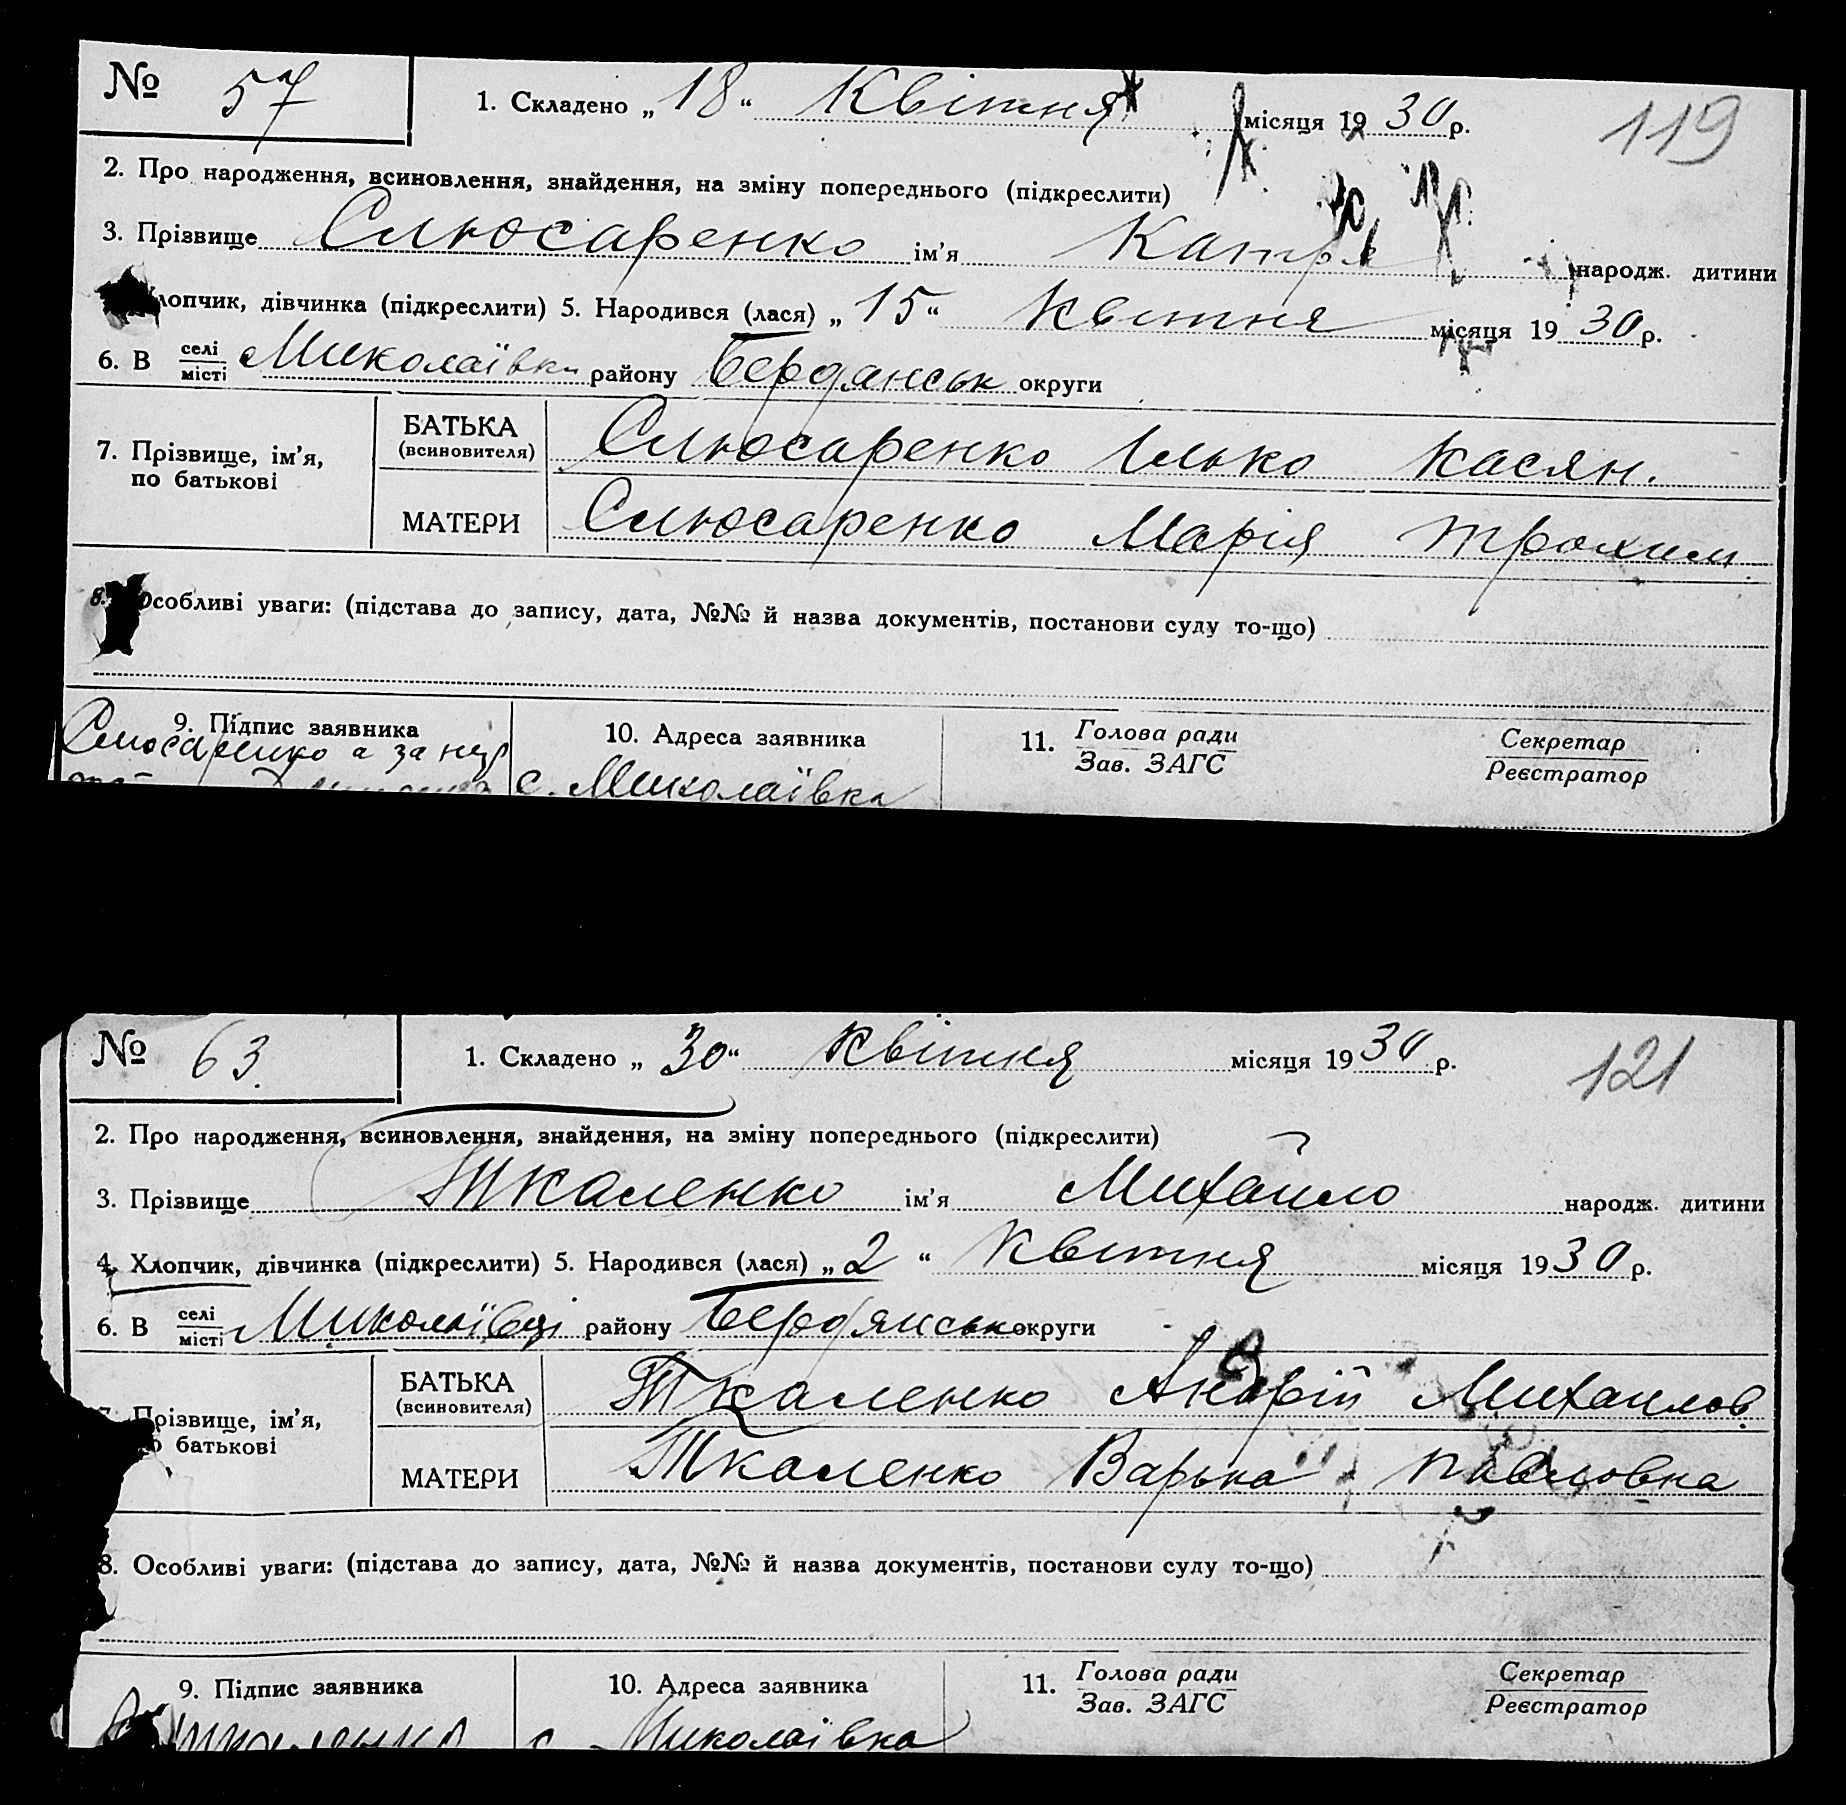 № 57 1. Складено „ 18 “ Квітня місяця 1930 р. 119
2. Про народження, всиновлення, знайдення, на зміну попереднього (підкреслити)
3. Прізвище Слюсаренко ім’я Катря народж. дитини
лопчик, дівчинка (підкреслити) 5. Народився (лася) „ 15 “ Квитня місяця 1930 р.
6. В селі/місті Миколаївки району Берданськ округи
7. Прізвище, ім’я, по батькові
БАТЬКА (всиновителя) Слюсаренко Ілько Касян.
МАТЕРИ Слюсаренко Марія Трохим.
8. Особливі уваги: (підстава до запису, дата, №№ й назва документів, постанови суду то-що)
9. Підпис заявника 10. Адреса заявника 11. Голова ради/Зав. ЗАГС Секретар/Реєстратор
Слюсаренко а за
с. Миколаївка
№ 63. 1. Складено „ 30 “ Квітня місяця 1930 р. 121
2. Про народження, всиновлення, знайдення, на зміну попереднього (підкреслити)
3. Прізвище Ткаленко ім’я Михайло народж. дитини
4. Хлопчик, дівчинка (підкреслити) 5. Народився (лася) „ 2 “ Квитня місяця 1930 р.
6. В селі/місті Миколаївці району Бердянськ округи
Прізвище, ім’я, по батькові
БАТЬКА (всиновителя) Ткаленко Андрій Михайлов.
МАТЕРИ Ткаленко Варька Павловна
8. Особливі уваги: (підстава до запису, дата, №№ й назва документів, постанови суду то-що)
9. Підпис заявника 10. Адреса заявника 11. Голова ради/Зав. ЗАГС Секретар/Реєстратор
с. Миколаївка